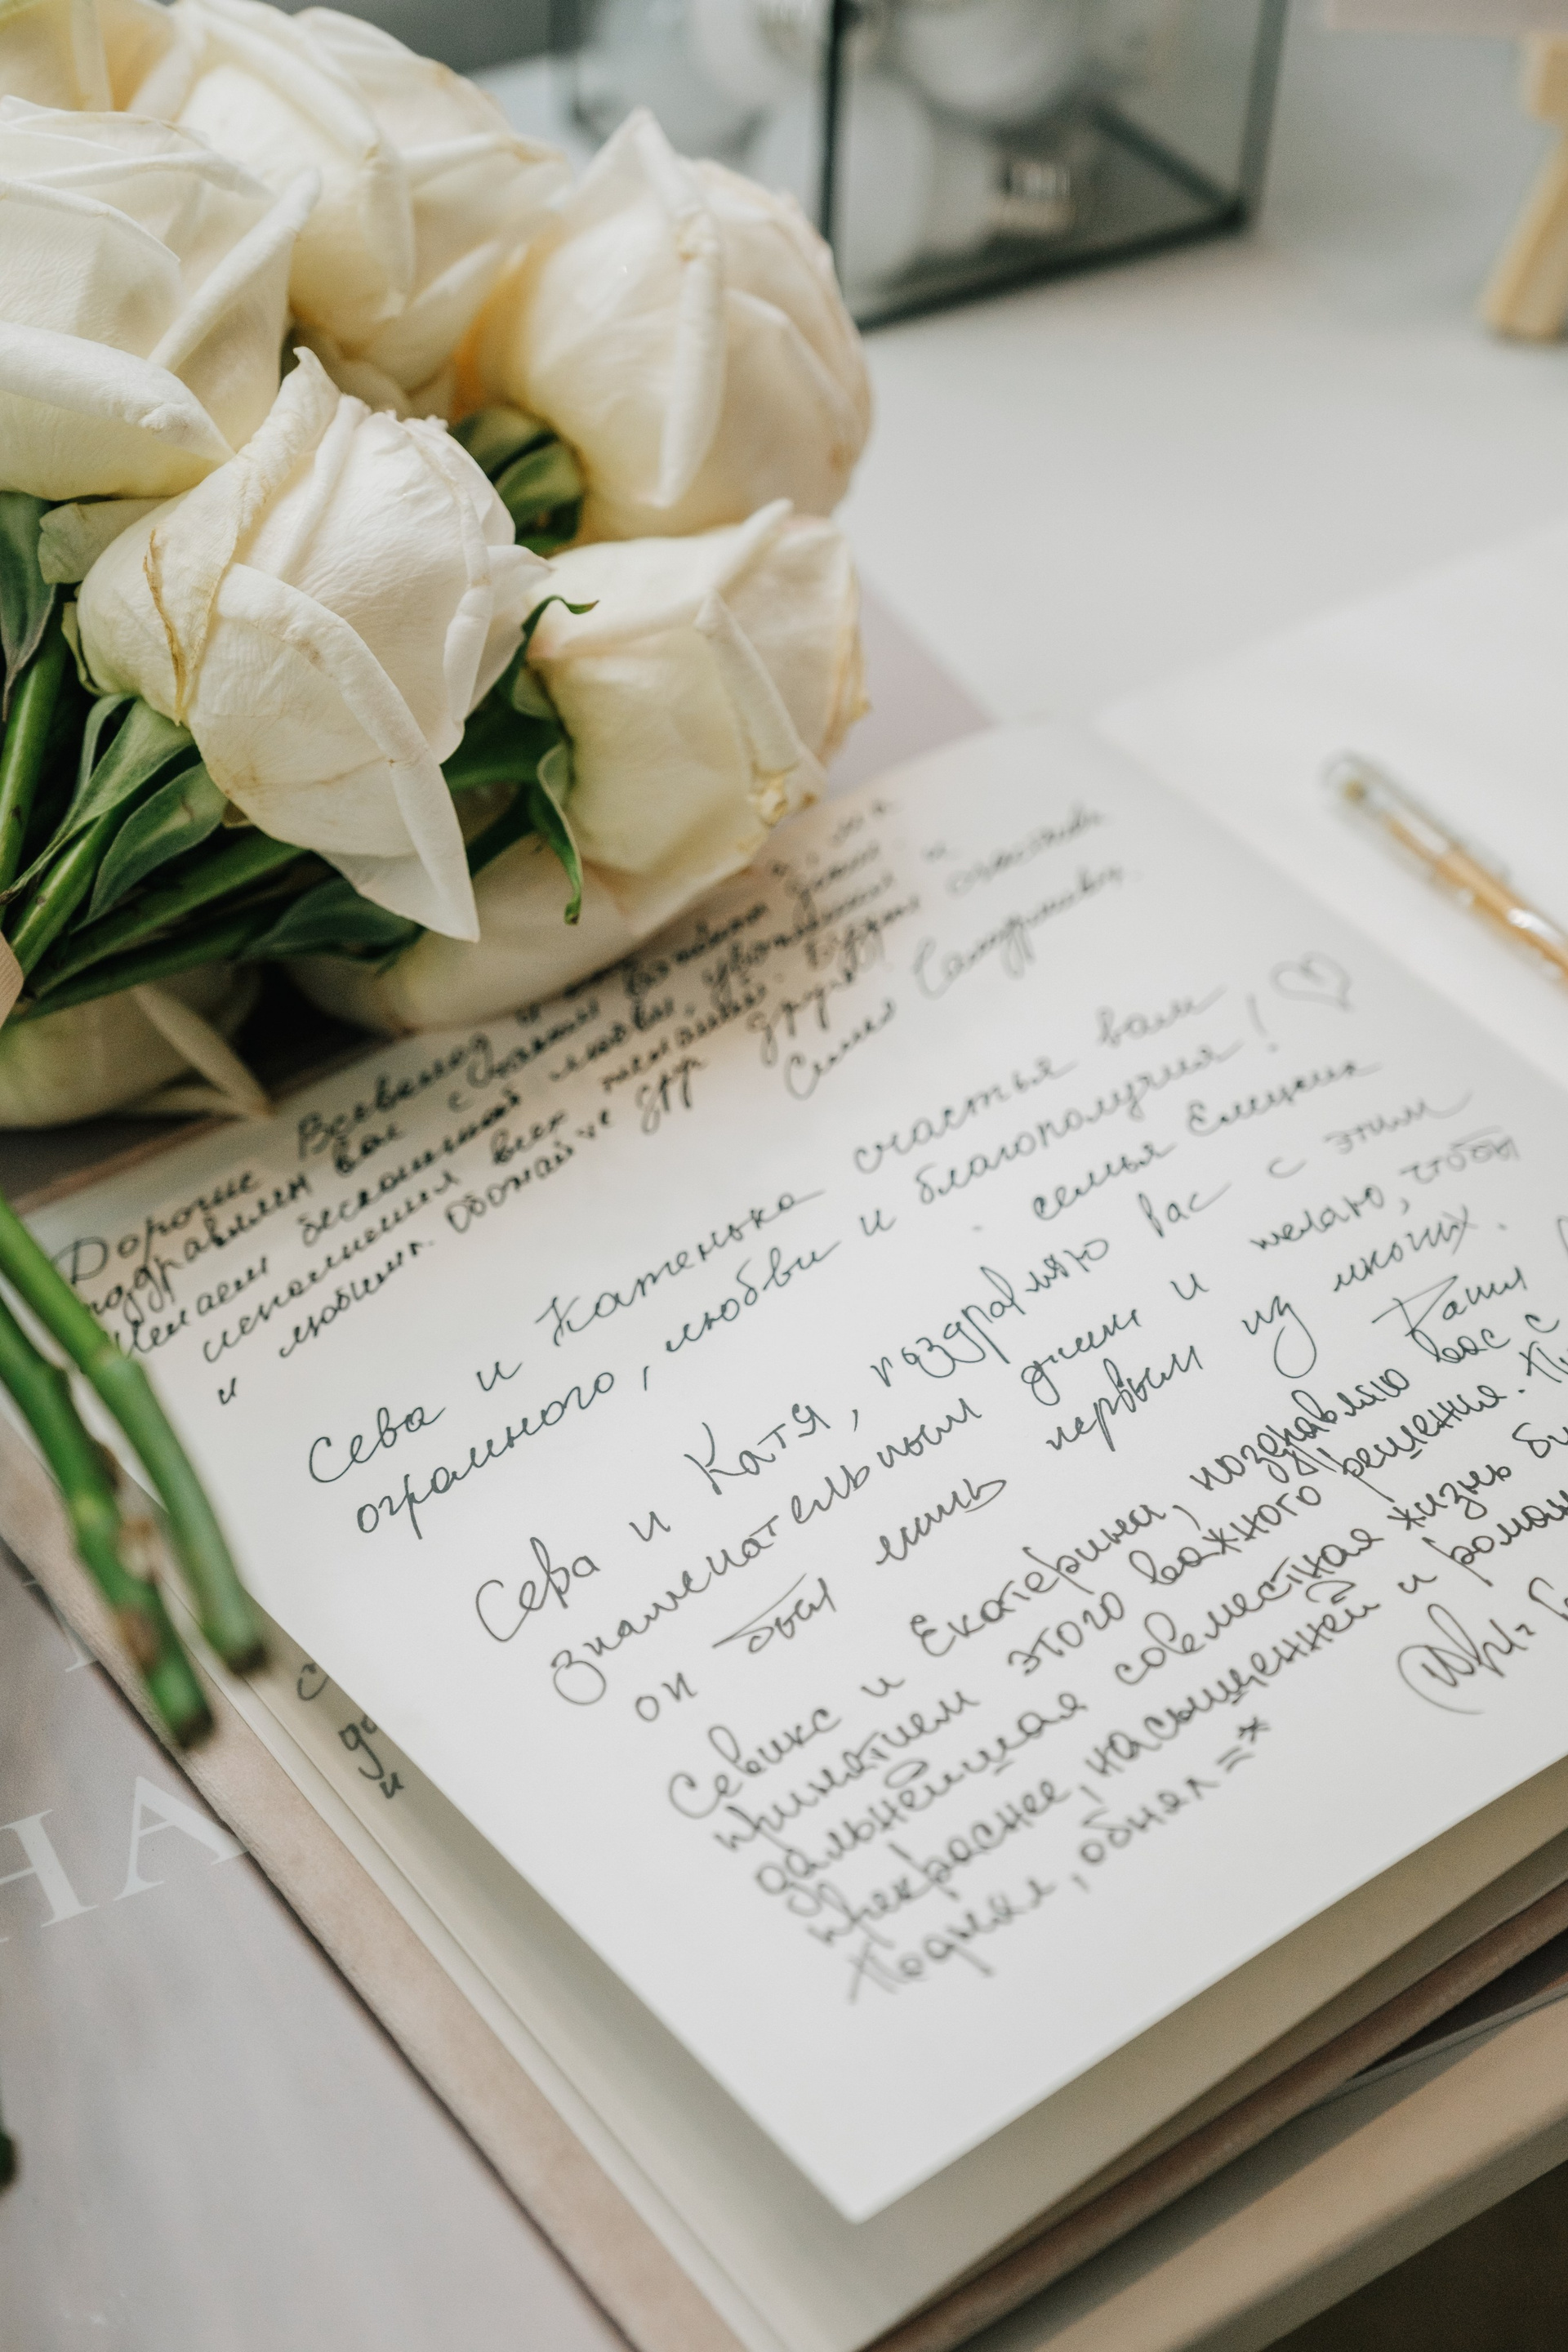 Дорогие Всеволод и
поздравляем вас с
Желаем бесконечной любви,
исполнения всех желаний. Будьте счастливы
и любимы. Обожайте друг друга
Семья
Сева и Катенька счастья вам
огромного, любви и благополучия!
семья Елецких
Сева и Катя, поздравляю вас с этим
знаменательным днём и желаю, чтобы
он был лишь первым из многих.
Севикс и Екатерина, поздравляю вас с
принятием этого важного решения.
дальнейшая совместная жизнь
прекраснее, насыщенней и
Поднял, обнял =*
с
до
и
НА